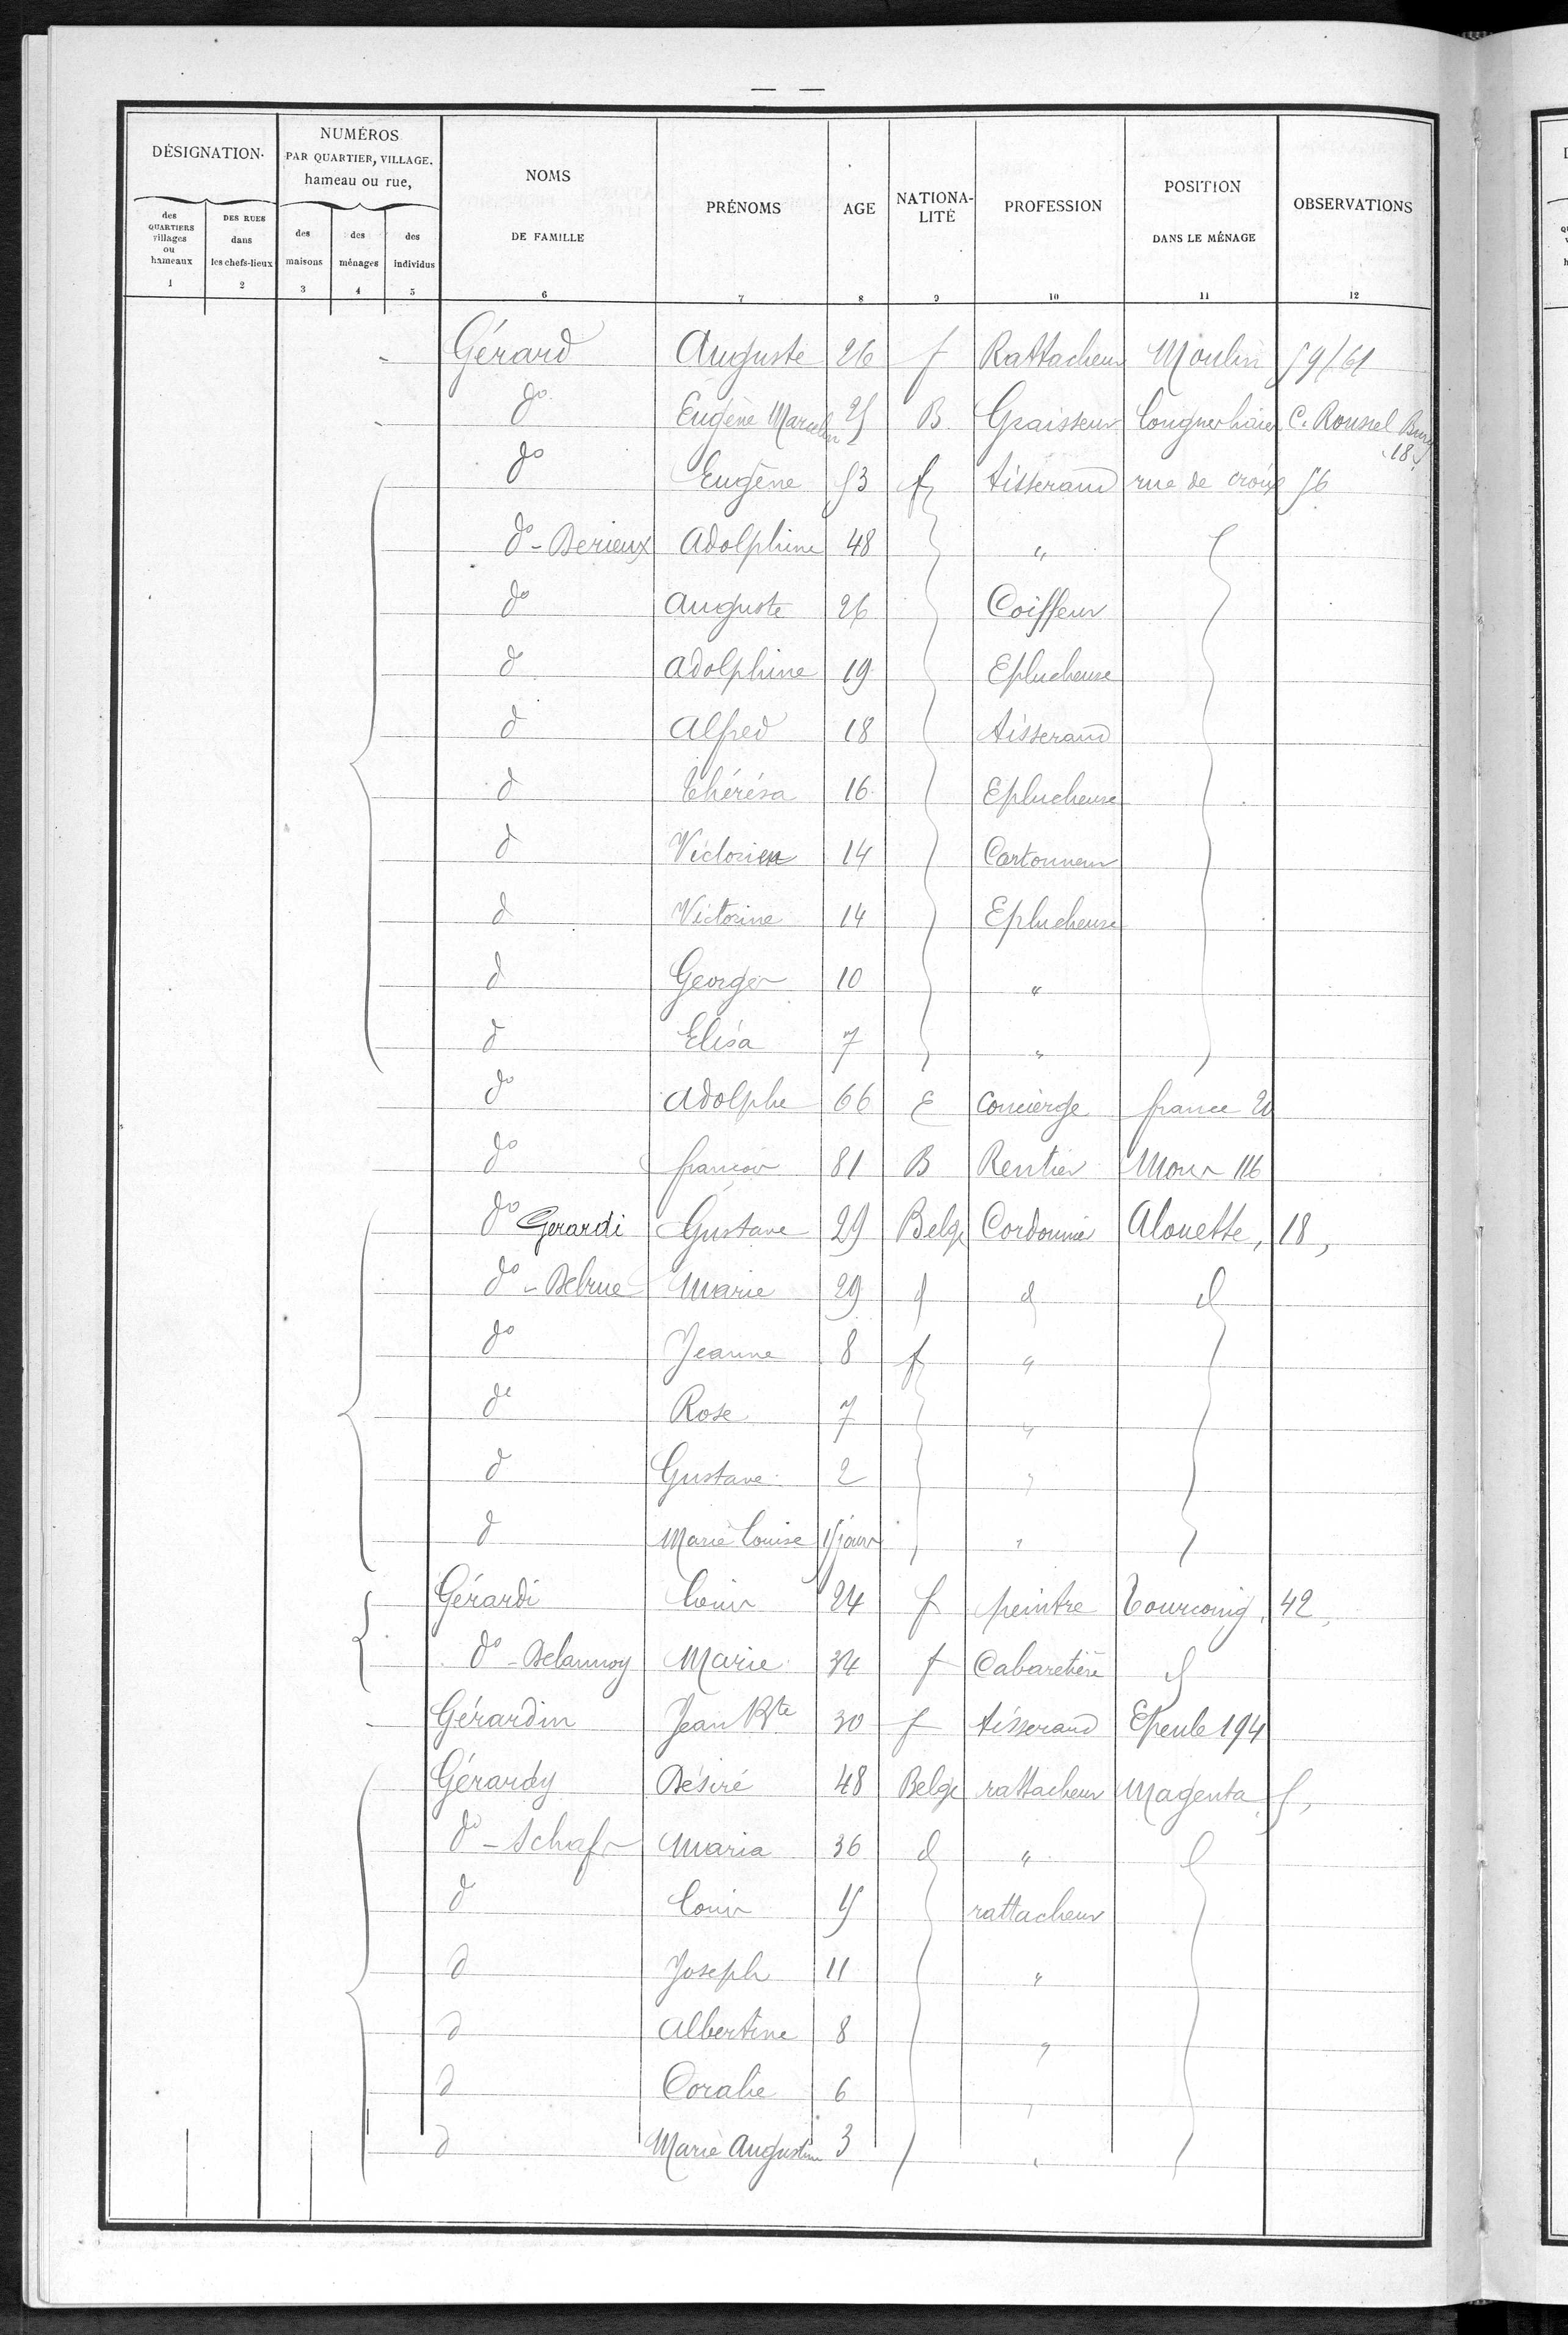 — —
DÉSIGNATION
NUMÉROS
PAR QUARTIER, VILLAGE.
hameau ou rue,
des QUARTIERS villages ou hameaux
DES RUES dans les chefs-lieux
des maisons
des ménages
des individus
NOMS DE FAMILLE
PRÉNOMS
AGE
NATIONA-LITÉ
PROFESSION
POSITION DANS LE MÉNAGE
OBSERVATIONS
1 2 3 4 5 6 7 8 9 10 11 12
Gérard Auguste 26 f Rattacheur Moulin 59/61
do Eugène Marcelin 25 B. Graisseur Longues haies C. Roussel 18
do Eugène 53 f tisserand rue de croix 56
do - Derieux Adolphine 48 "
do Auguste 26 Coiffeur
do Adolphine 19 Eplucheuse
d Alfred 18 tisserand
d Thérésa 16 Eplucheuse
d Victorien 14 Cartonneur
d Victorine 14 Eplucheuse
d Georges 10 "
d Elisa 7 "
do Adolphe 66 E concierge france 20
do françois 81 B Rentier Mour 116
do Gerardi Gustave 29 Belge Cordonnier Alouette, 18,
do - Delrue Marie 29 d d d
do Jeanne 8 f "
do Rose 7 "
d Gustave 2 "
d Marie Louise 15 jours "
Gérardi Louis 24 f peintre Tourcoing, 42,
do - Delannoy Marie 34 f Cabaretière d
Gérardin Jean Bte 30 f tisserand Epeule 194
Gérardy Désiré 48 Belge rattacheur Magenta 5,
do - Schafs Maria 36 d "
d Louis 15 rattacheur
d Joseph 11 "
d Albertine 8 "
d Coralie 6 "
d Marie Augustine 3 "